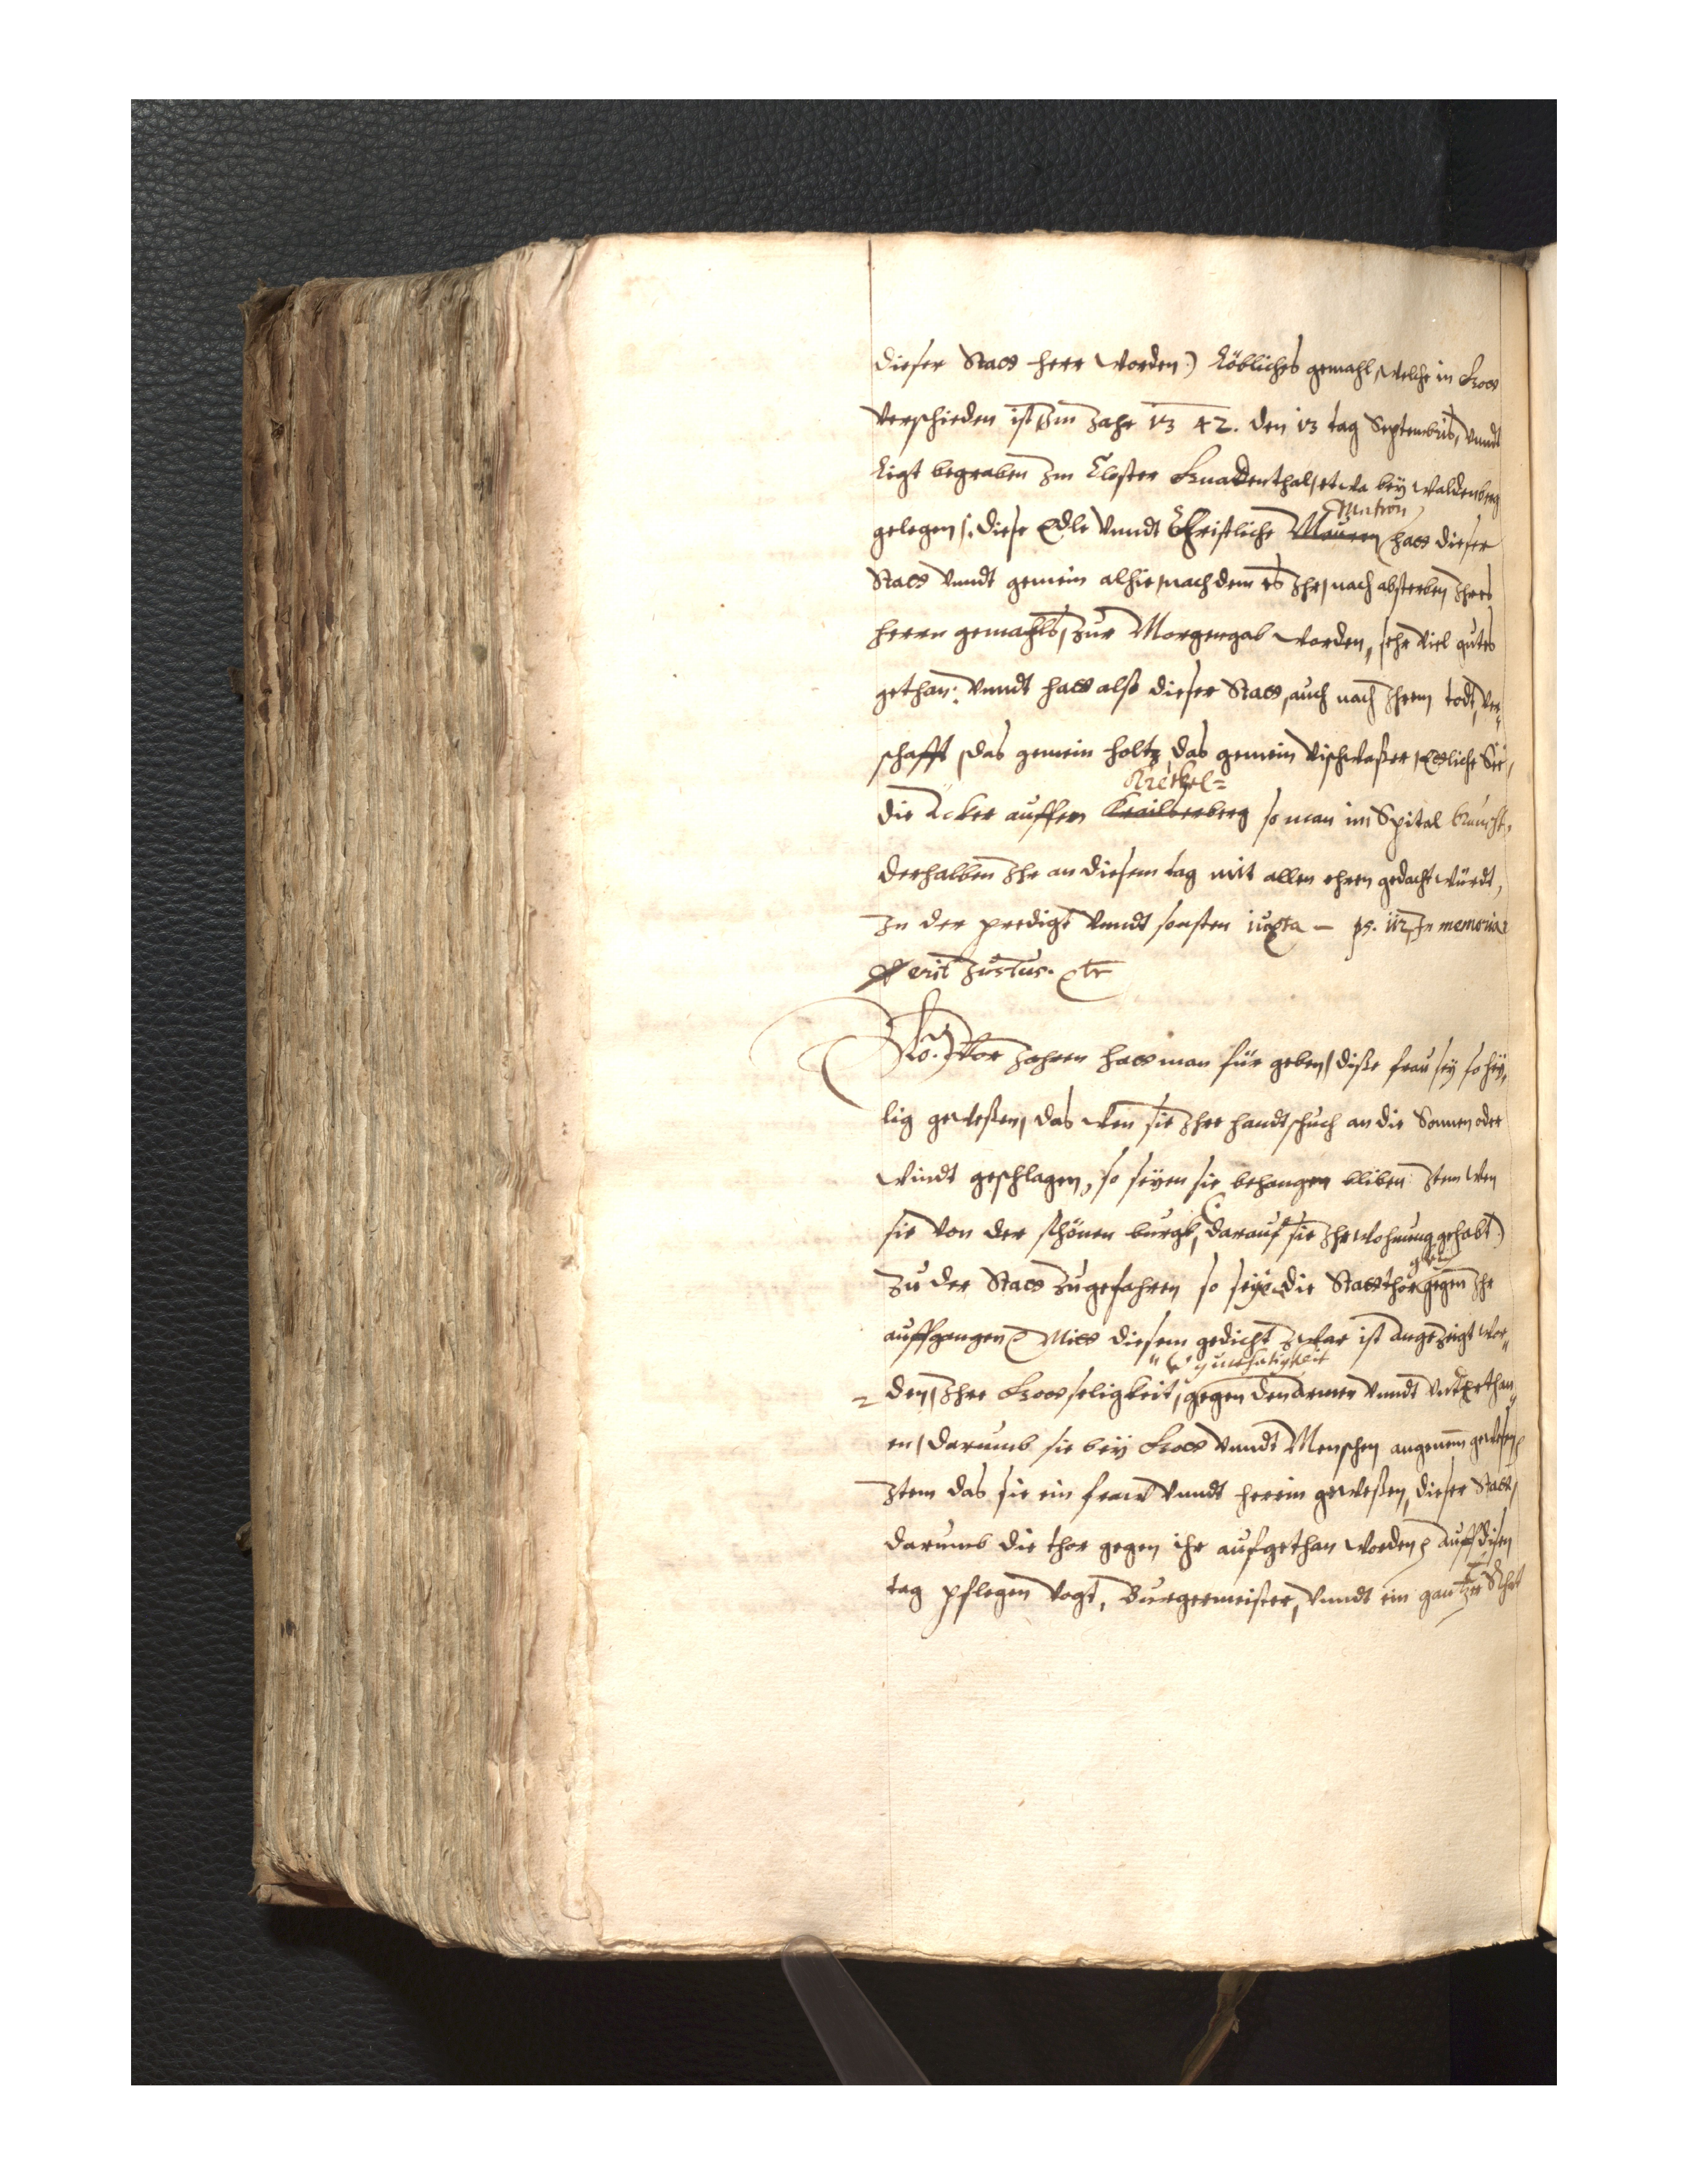 dieser Statt herr worden) löbliches gemahl, welche in Gott
verschieden ist, Im Jahr 1342. den 13 tag Septembris, vnndt
ligt begraben Im Closter Gnadenthal, etwa bey Waldenberg
gelegen /: diese Edle vnndt Christliche Matron hatt dieser
Statt vnndt gemein alhie, nach dem es Ihr, nach absterben Ihres
herrn gemahls, zur Morgengab worden, sehr viel gutes
gethan: vnndt hatt also dieser Statt, auch nach Ihrem todt, ver„
schafft, das gemein holtz, das gemein vischwaßer, Ettliche See,
die äcker auffem Kreilberberg so man im Spital
derhalben Ihr an diesem tag mit allen ehren gedacht würdt,
In der predigt vnndt sonsten iuxta – ps. 112, In memoria
erit Iustus. etc
No. Vor Jahren hatt man für geben, diße frau sey so hey„
lig geweßen, das wen sie Ihre handtschuch an die Sonnen oder
windt geschlagen, so seyen sie behangen bliben Item wen
sie von der schönen burgk, (darauf sie Ihr wohnung gehabt)
zu der Statt zugefahren so seye die Statthor gegen Ihr
auffgangen Mitt diesem gedicht zwar ist angezeigt wor„
den, Ihre Gottseligkeit, gegen den Armen vnndt vnderthan„
en, darumb sie bey Gott vnndt Menschen angenem gewesen
Item das sie ein fraw vnndt herrin geweßen, dieser Statt,
darumb die thor gegen ihr aufgethan worden, auff disen
tag pflegen Vogt, Burgermeister, vnndt ein gantzer Rhat